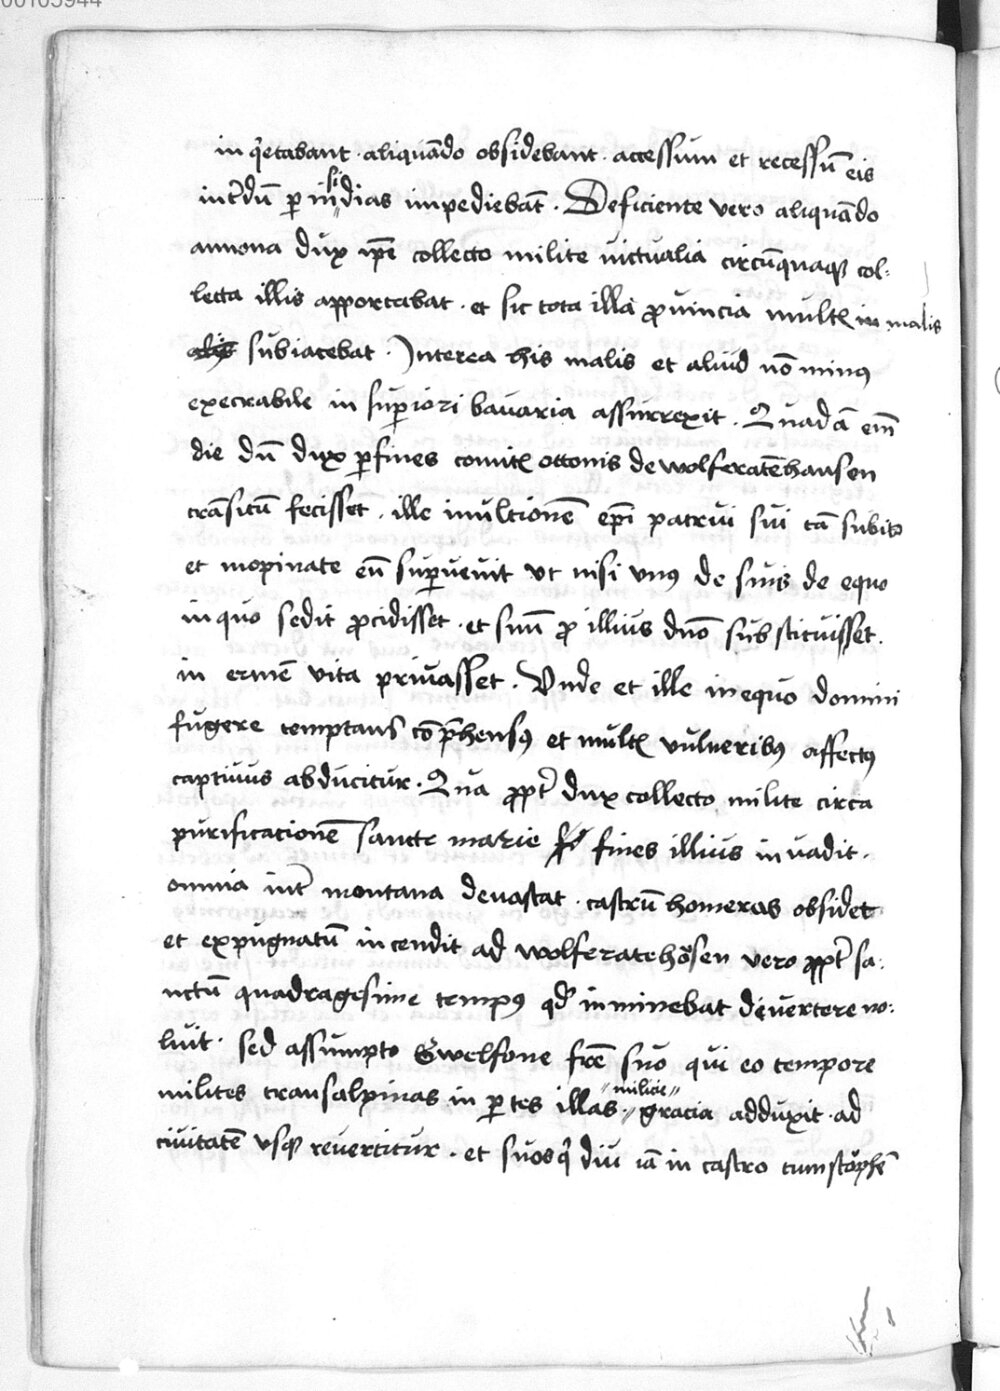 00105944
in q̄etabant · aliquādo obsidebant · accessum et recessū eis
int̄dū ꝑ insidias impediebāt · Deficiente vero aliquādo
annona dux ip̄e collecto milite uictualia circūquaqꝫ col-
lecta illis apportabat · et sic tota illa ꝓuincia multꝭ in malis
subiacebat · Interea his malis et aliud nō minꝰ
execrabile in suꝑiori bavaria assurrexit · Quadā em̄
die dū dux ꝑ fines comitꝭ ottonis de wolferatēhausen
trāsitū fecisset · ille in ultionē ep̄i patrui sui tā subito
et inopinate eū suꝑvenit vt nisi vnꝰ de suis de equo
in quo sedit ꝓcidisset · et suū ꝓ illius dn̄o substituisset ·
in ermē vita privasset · Vnde et ille in equo domini
fugere temptans cōp̄hensꝰ et multꝭ vulneribꝰ affectꝰ
captivus abducitur · Qua ꝓpt̄ dux collecto milite circa
purificationē sancte marie fines illius invadit ·
omnia int̄ montana devastat · castrū homeras obsidet
et expugnatū incendit ad wolferatehōsen vero ꝓpt̄ sa-
nctū quadragesime tempꝰ qd̄ inminebat divertere no-
luit · sed assumpto Gwelfone fr̄e suo qui eo tempore
milites transalpinas in ꝑtes illas · milicie gracia adduxit · ad
civitatē vsqꝫ revertitur · et suos q̄ diu iā in castro cum stōphē